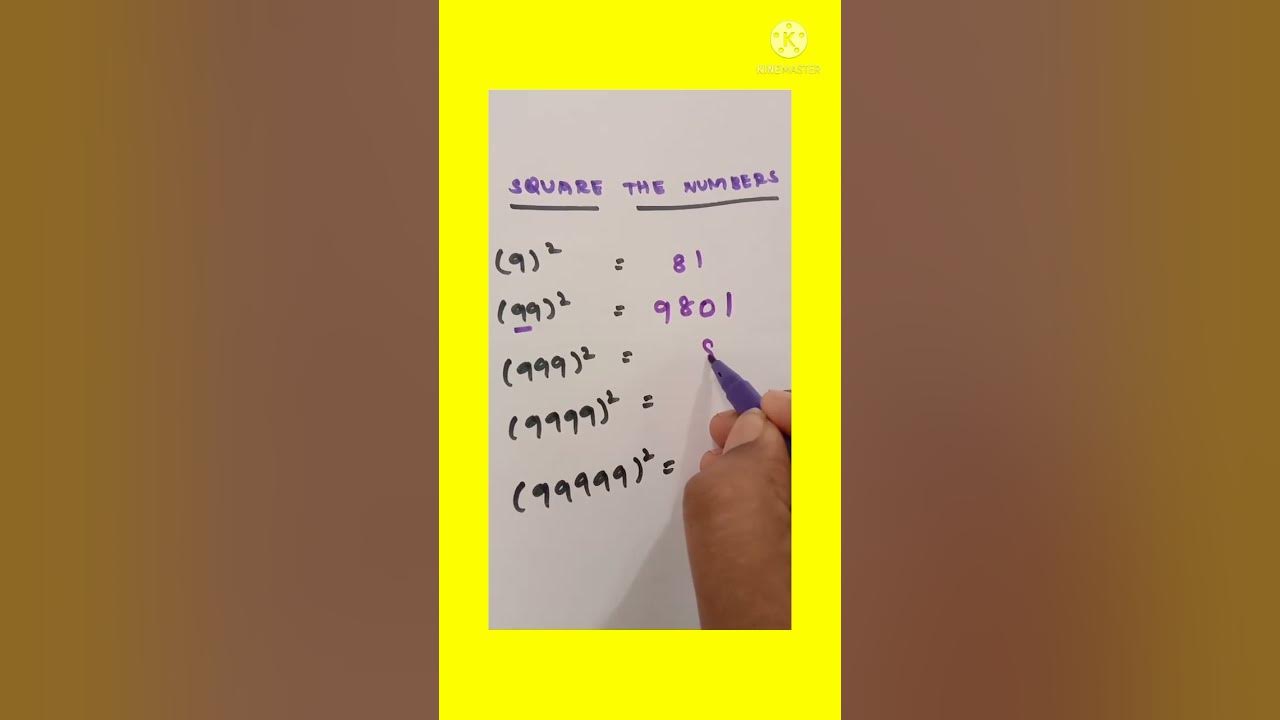 KINEMASTER
SQUARE THE NUMBERS
(9)² = 81
(99)² = 9801
(999)² =
(9999)² =
(99999)² =